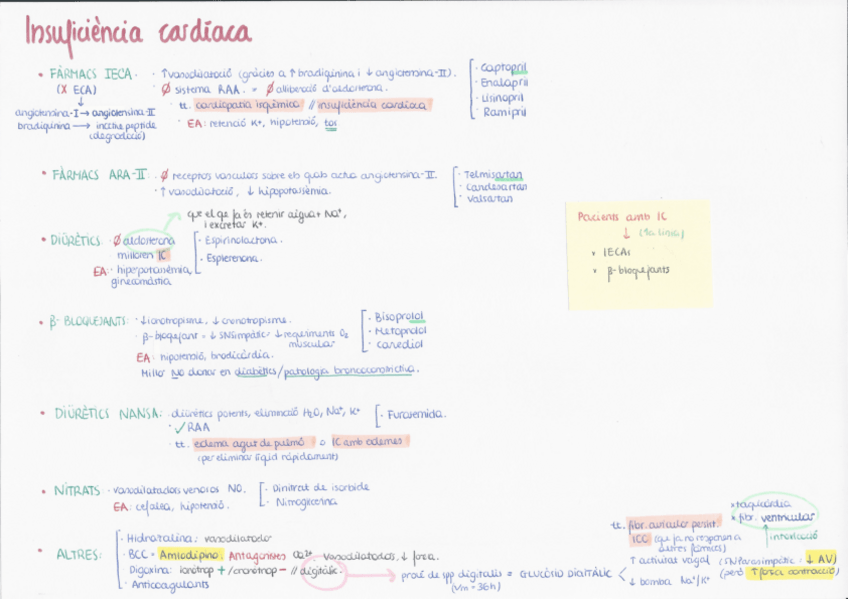 Insuficiència cardíaca
• FÀRMACS IECA: · ↑vasodilatació (gràcies a ↑ bradiquinina i ↓ angiotensina-II).
(X ECA)
· Ø sistema RAA. = Ø alliberació d'aldosterona.
angiotensina-I → angiotensina-II
bradiquinina → inactive peptide
(degradació)
· tt. cardiopatia isquèmica // insuficiència cardíaca
· EA: retenció K+, hipotensió, tos.
· Captopril
· Enalapril
· Lisinopril
· Ramipril
• FÀRMACS ARA-II: · Ø receptors vasculars sobre els quals actua angiotensina-II.
· ↑ vasodilatació, ↓ hipopotasèmia.
· Telmisartan
· Candesartan
· Valsartan
que el que fa és retenir aigua + Na+,
i excretar K+.
• DIÜRÈTICS: · Ø aldosterona
milloren IC
EA: hiperpotasèmia,
ginecomàstia
· Espirinolactona.
· Esplerenona.
Pacients amb IC
↓ (1a línia)
× IECAs
× β-bloquejants
• β-BLOQUEJANTS: · ↓ionotropisme, ↓ cronotropisme.
· β-bloquejant = ↓ SNSimpàtic ↓ requeriments O2
muscular
EA: hipotensió, bradicàrdia.
Millor NO donar en diabètics/patologia broncoconstrictiva.
· Bisoprolol
· Metoprolol
· Carvediol
• DIÜRÈTICS NANSA: · diürètics potents, eliminació H2O, Na+, K+
· ✓RAA
· tt. edema agut de pulmó o IC amb edemes
(per eliminar líquid ràpidament)
· Furosemida.
• NITRATS · vasodilatadors venosos NO.
EA: cefalea, hipotensió.
· Dinitrat de isorbide
· Nitroglicerina
• ALTRES:
· Hidralazina: vasodilatador
· BCC = Amlodipino. Antagonistes Ca2+ vasodilatadors, ↓ força.
· Digoxina: ionotrop + / cronotrop - // digitàlic.
· Anticoagulants
prové de spp digitalis = GLUCÒSID DIGITÀLIC
(v½ = 36h)
tt. fibr. auricular persist.
ICC (que ja no responen a
altres fàrmacs)
↑ activitat vagal (SN Parasimpàtic = ↓ AV)
↓ bomba Na+/K+ (però ↑força contracció)
× taquicàrdia
× fibr. ventricular
↑ intoxicació